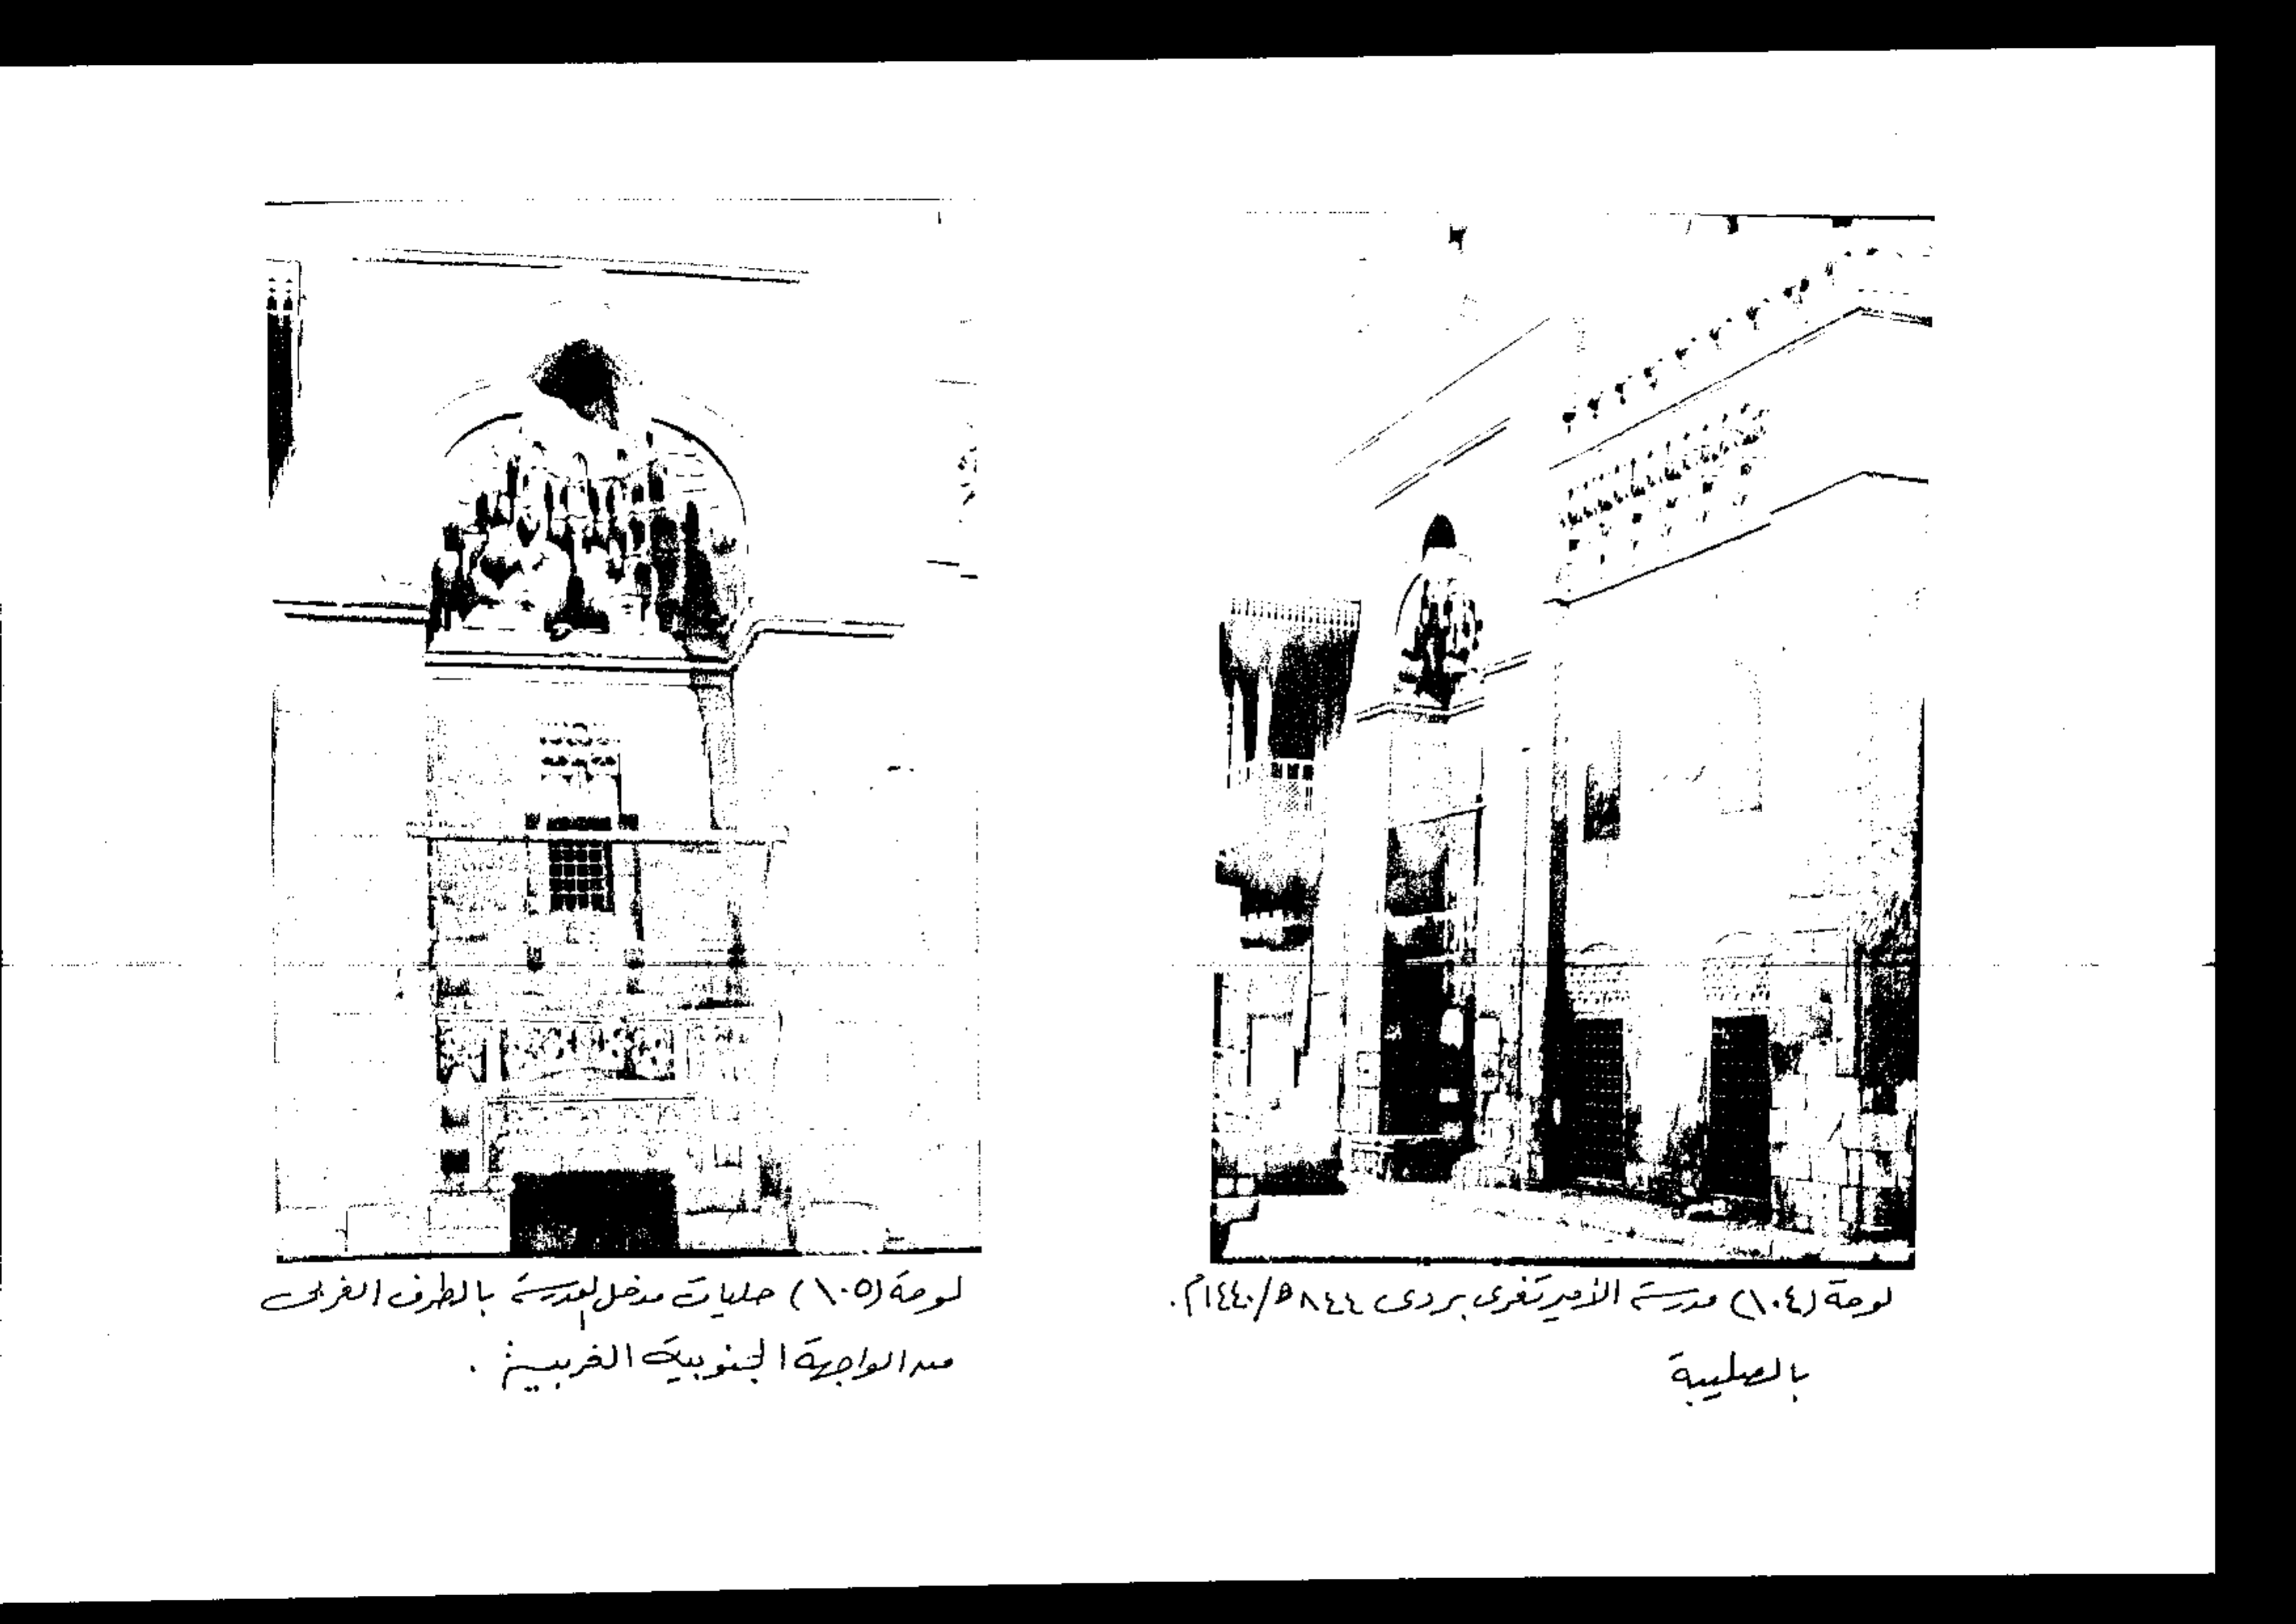 لوحة (١٠٤) مدرسة الأمير تغرى بردى ٨٤٤ه/١٤٤٠م.
بالصليبة
لوحة (١٠٥) حليات مدخل المدرسة بالطرف الغربى
من الواجهة الجنوبية الغربية .